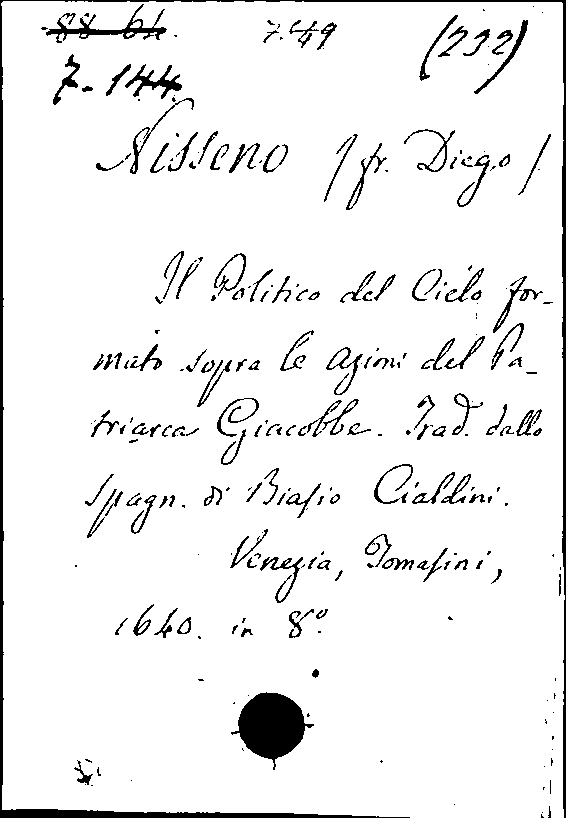 88 64. 7.49 (232)
7-144
Nisseno / fr. Diego /
Il Politico del Cielo for-
mato sopra le Azioni del Pa-
triarca Giacobbe. Trad. dallo
Spagn. di Biasio Cialdini.
Venezia, Tomasini,
1640. in 8º.